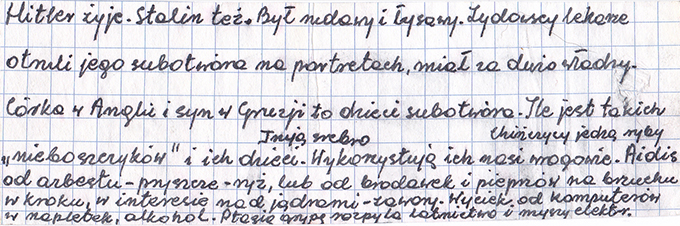 Hitler żyje. Stalin też. Był rudawy i łysawy. Żydowscy lekarze
otruli jego sobotwóra na portretach, miał za dużo władzy.
Córka w Anglii i syn w Gruzji to dzieci sobotwóra. Ile jest takich
Trują srebro Chińczycy jedzą ryby
„nieboszczyków" i ich dzieci. Wykorzystują ich nasi wrogowie. Aidis
od arbestu - pryszcze - ryż, lub od brodawek i pieprzów na brzuchu
w kroku, w interesie nad jądrami - zawory. Wyciek od komputerów
w napletek, alkohol. Ptasią grypę rozpyla lotnictwo i myszy elektr.